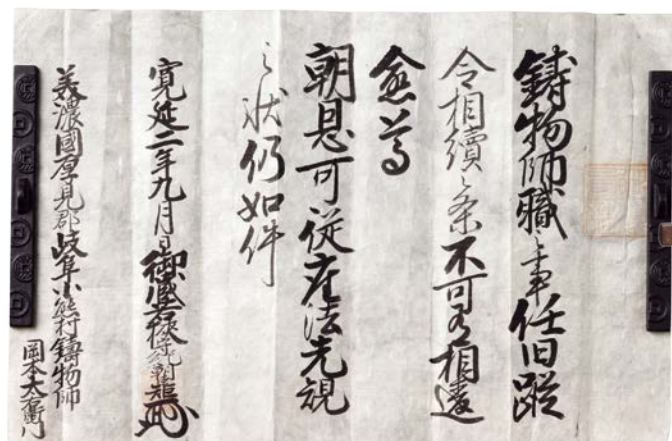 鋳物師職之事任旧蹤
令相續之条不可有相違
愈守
朝恩可従座法先規
之状仍如件
寛延二年九月日御蔵若禄
美濃國厚見郡岐阜小熊村鋳物師
岡本太右衛門